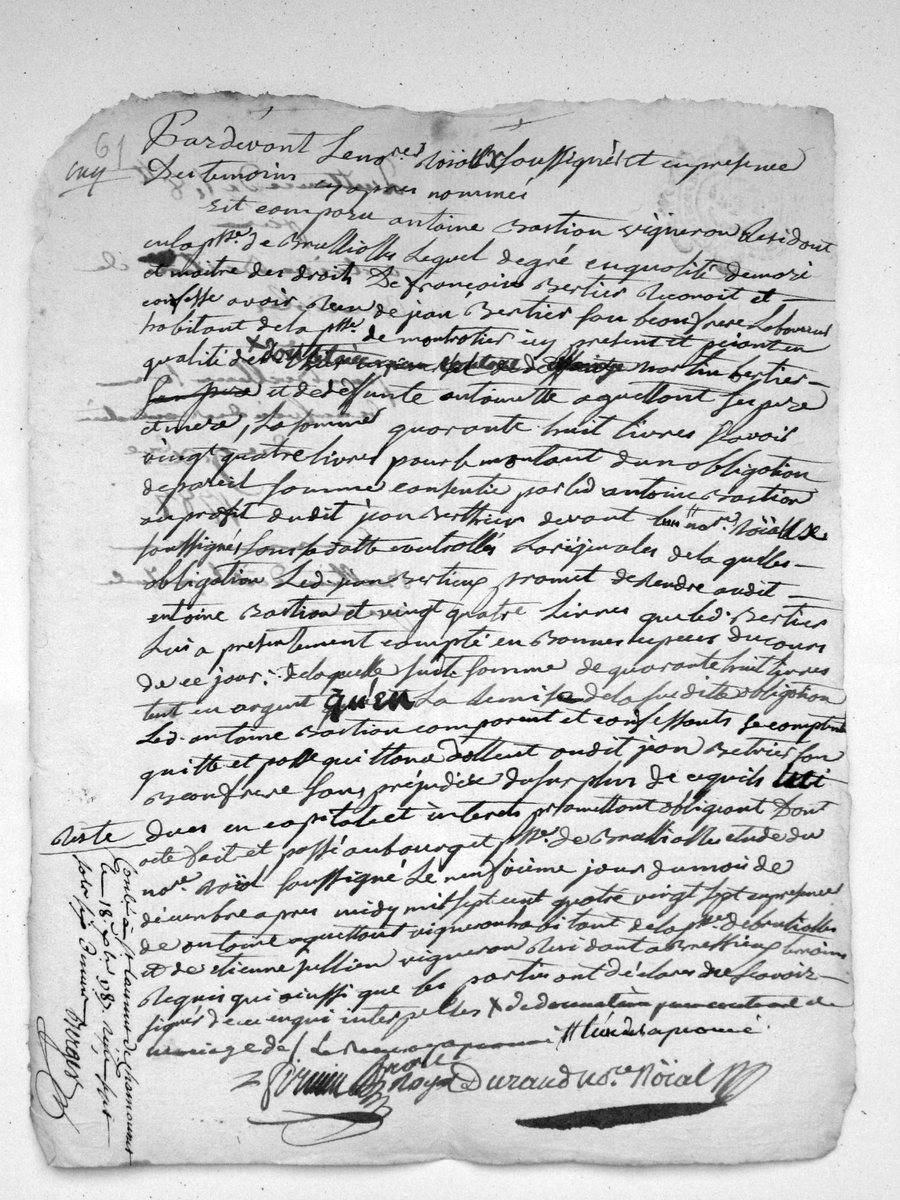 61
Pardevant Le nore Roïal soussignés et en presence
Des temoins cy apres nommés
Est comparu antoine Bastion vigneron Residant
en la psse. de Brullioles Lequel de gré en qualité de mari
et maitre des droits De françoise Bertier Reconoit et
confesse avoir Recu de jean Bertier son beaufrere Laboureur
habitant de la psse. de montrotier icy present et
qualité de martin bertier
et de deffunte antoinette aguettant ses pere
et mere, La somme quarante huit Livres savoir
vingt quatre Livres pour le montant dun obligation
de pareil somme consentie par led antoine Bastion
au profit dudit jean Berthier devant nore Roïal
soussignés sous sa datte controllés Loriginales de la quelles
obligation Led. jean Bertier promet de Rendre audit
antoine Bastion et vingt quatre Livres que led. Bertier
Lui a presentement compté en Bonnes especes du cours
de ce jour; de laquelle susite somme de quarante huit Livres
tant en argent qu'en La Remise de la susdite obligation
Led. antoine Bastion comparent et confessants se comptent
quitte et passe quittance audit jean Betrier son
Beaufrere sans prejudice du surplus de ce qu'ils
dues en capital et interets promettant obligeant Dont
acte fait et passé au bourg et psse. de Brullioles etude du
nore Roïal soussigné Le neufvieme jour du mois de
décembre apres midy mil sept cent quatre vingt sept en presence
de antoine aguettant vigneron habitant de la psse de brullioles
et de etienne pellien vigneron Residant a Bressieux temoins
Requis qui ainssi que les parties ont déclaré ne scavoir
signés de ce enqui interpellés de
mariage de
Durand nore Roïal
Reste
Controllé a st Laurent de chamousset
Le 18. xbre 1787. Reçu
Berger